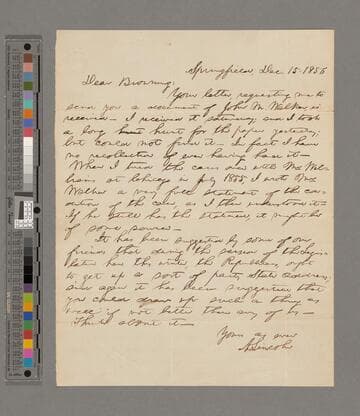 Springfield, Dec. 15. 1856
Dear Browning:
Your letter, requesting me to
send you a document of John M. Walker, is
received. I received it saturday; and I took
a long hunt for the paper yesterday;
but could not find it. In fact I have
no recollection of ever having had it.
When I tried the case with Mr. Wil-
liams at Chicago in July 1855, I wrote Mr.
Walker a very full statement of the con-
dition of the case, as I then understood it.
If he still has the statement, it might be
of some service.
It has been suggested by some of our
friends that during the session of the Legis-
lature here this winter, the Republicans, ought
to get up a sort of party State address;
and again it has been suggested that
you could draw up such a thing as
well if not better than any of us.
Think about it.
Yours as ever
A. Lincoln